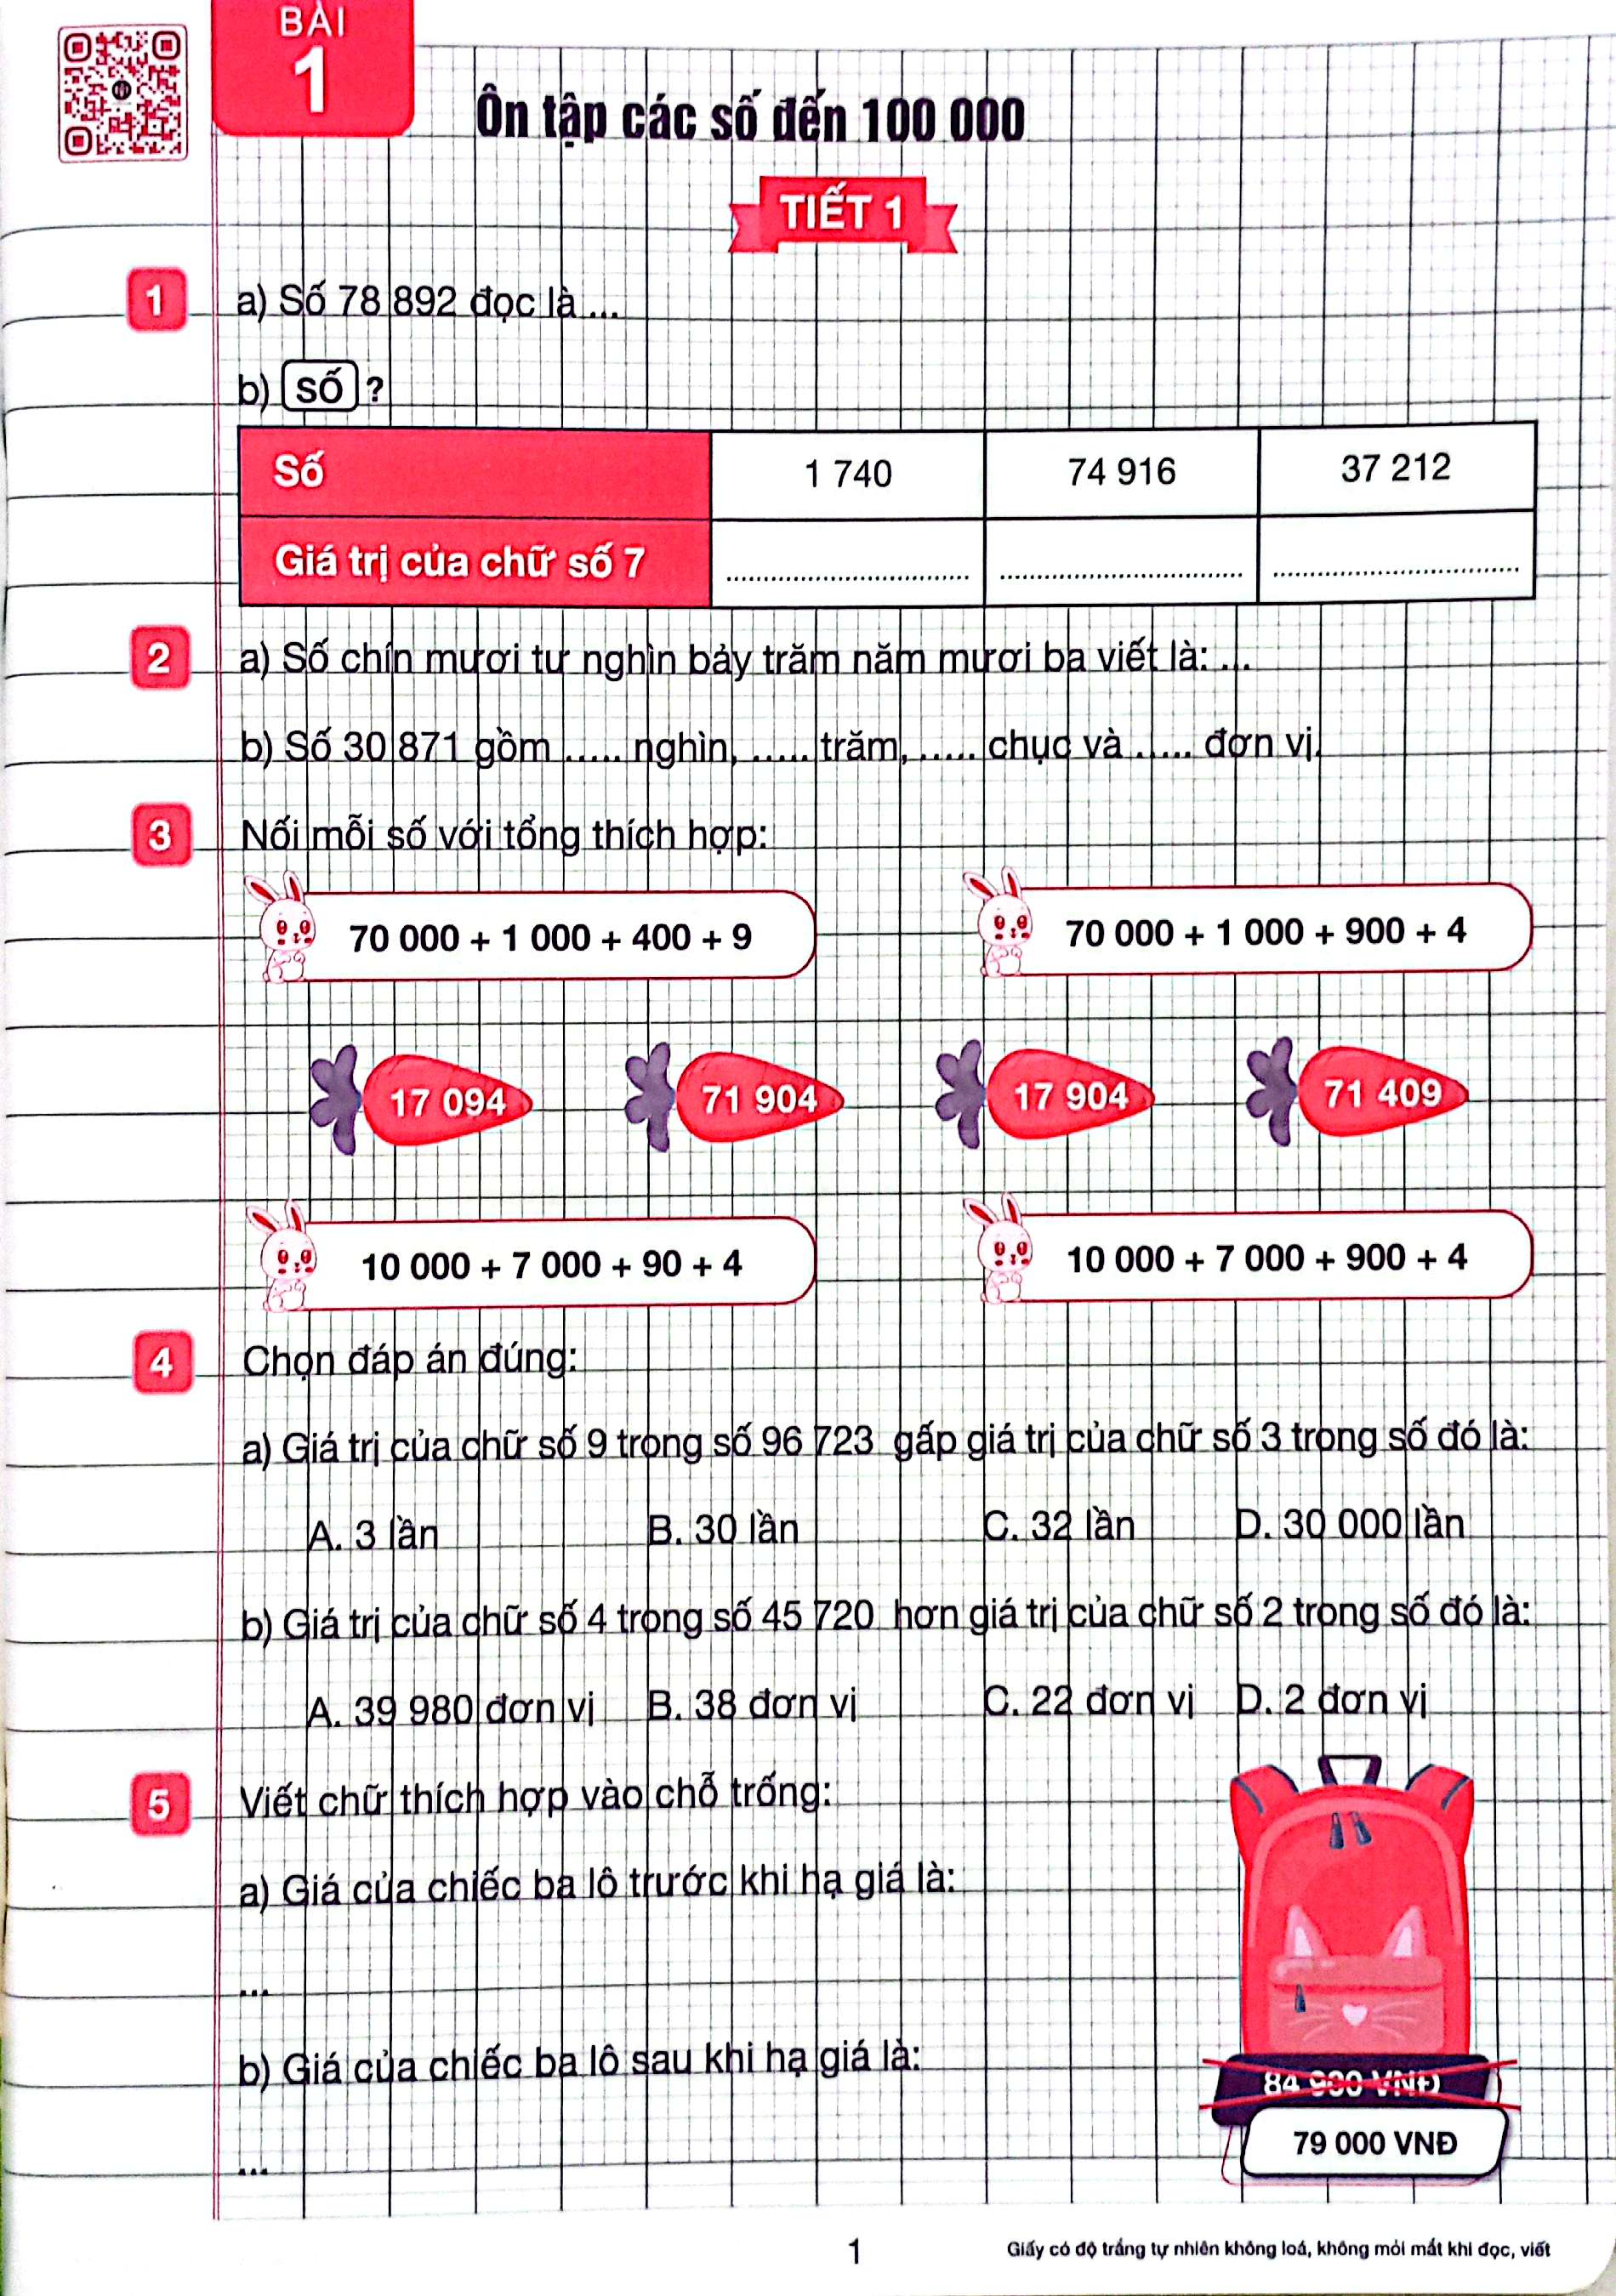 BÀI
1
Ôn tập các số đến 100 000
TIẾT 1
1
a) Số 78 892 đọc là ...
b) Số ?
Số 1 740 74 916 37 212
Giá trị của chữ số 7 ............ ............ ............
2
a) Số chín mươi tư nghìn bảy trăm năm mươi ba viết là: ...
b) Số 30 871 gồm ..... nghìn, ..... trăm, ..... chục và ..... đơn vị.
3
Nối mỗi số với tổng thích hợp:
70 000 + 1 000 + 400 + 9
70 000 + 1 000 + 900 + 4
17 094 71 904 17 904 71 409
10 000 + 7 000 + 90 + 4
10 000 + 7 000 + 900 + 4
4
Chọn đáp án đúng:
a) Giá trị của chữ số 9 trong số 96 723 gấp giá trị của chữ số 3 trong số đó là:
A. 3 lần B. 30 lần C. 32 lần D. 30 000 lần
b) Giá trị của chữ số 4 trong số 45 720 hơn giá trị của chữ số 2 trong số đó là:
A. 39 980 đơn vị B. 38 đơn vị C. 22 đơn vị D. 2 đơn vị
5
Viết chữ thích hợp vào chỗ trống:
a) Giá của chiếc ba lô trước khi hạ giá là:
...
b) Giá của chiếc ba lô sau khi hạ giá là:
...
84 VNĐ
79 000 VNĐ
1
Giấy có độ trắng tự nhiên không loá, không mỏi mắt khi đọc, viết